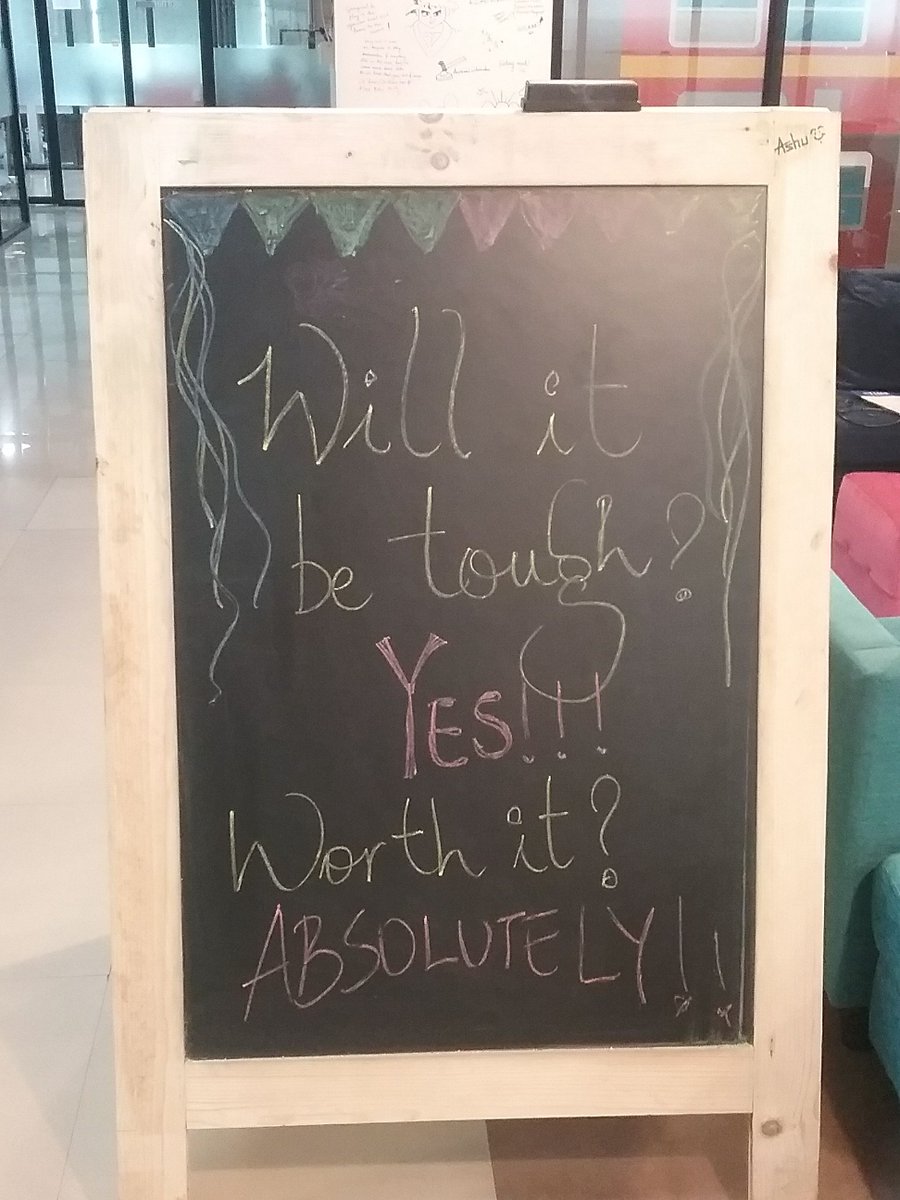 Ashu
Will it
be tough?
YES!!!
Worth it?
ABSOLUTELY!!